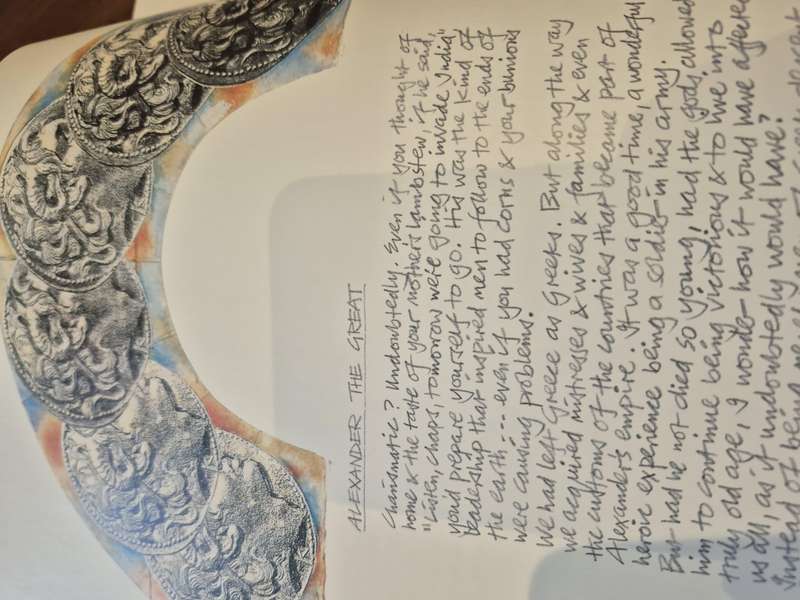 ALEXANDER THE GREAT
Charismatic? Undoubtedly. Even if you thought of
home & the taste of your mother's lambstew, if he said,
"Listen, chaps, tomorrow we're going to invade India"
you'd prepare yourself to go. His was the kind of
leadership that inspired men to follow to the ends of
the earth --- even if you had corns & your bunions
were causing problems.
We had left Greece as Greeks. But along the way
we acquired mistresses & wives & families & even
the customs of the countries that became part of
Alexander's empire. It was a good time, a wonderful
heroic experience being a soldier in his army.
But had he not died so young, had the gods allowed
him to continue being victorious & to live into
truly old age, I wonder how it would have affected
us all, as it undoubtedly would have?
Instead of being descent